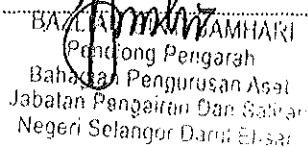 SAMHARI
Penolong Pengarah
Bahagian Pengurusan Aset
Jabatan Pengairan Dan Saliran
Negeri Selangor Darul Ehsan